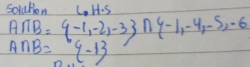 Solution L.H.S
A∩B = {-1, -2, -3} ∩ {-1, -4, -5, -6
A∩B = {-1}